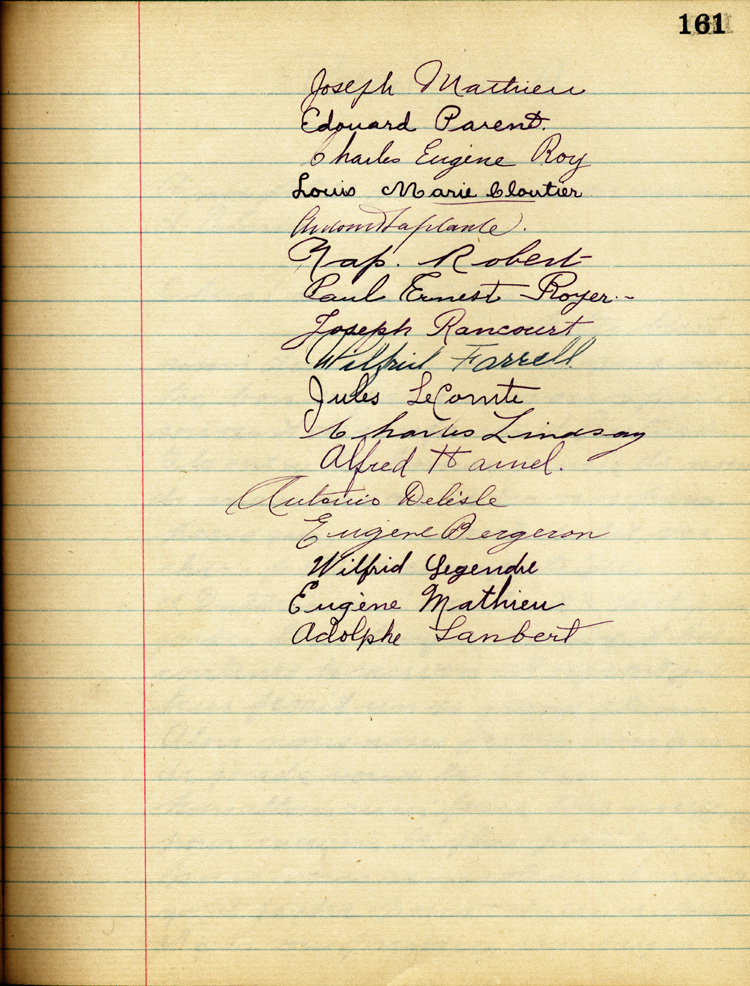 161
Joseph Mathieu
Edouard Parent.
Charles Eugène Roy
Louis Marie Cloutier
Laplante.
Nap. Robert
Paul Ernest Royer.-
Joseph Rancourt
Wilfrid Farrell
Jules LeComte
Charles Lindsay
Alfred Hamel.
Antonio Delisle
Eugène Bergeron
Wilfrid Legendre
Eugène Mathieu
Adolphe Lambert